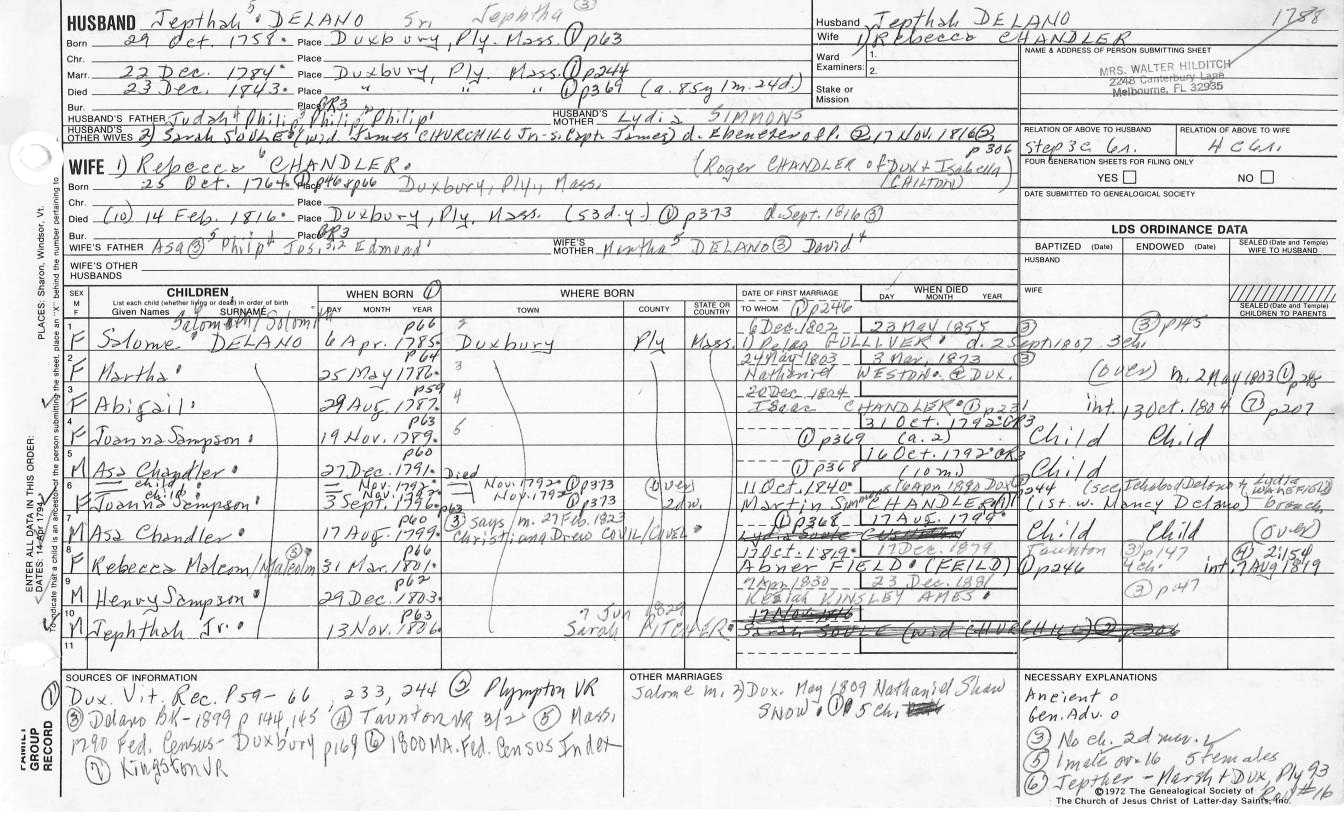 HUSBAND Jepthah⁵ DELANO Sr. Jephtha ③
Born 29 Oct. 1758. Place Duxbury, Ply. Mass. ① p63
Chr. Place
Marr. 22 Dec. 1784. Place Duxbury, Ply. Mass. ① p244
Died 23 Dec. 1843. Place " " " ① p369 (a. 85y 1m. 24d.)
Bur. Place GR3
HUSBAND'S FATHER Judah⁴ Philip³ Philip² Philip¹ HUSBAND'S MOTHER Lydia SIMMONS
HUSBAND'S OTHER WIVES 2) Sarah SOULE (wid. James CHURCHILL Jr. s. Capt. James) d. Ebenezer of P. ② 17 Nov. 1816 ②
p 306
Husband Jepthah DELANO 1788
Wife 1) Rebecca CHANDLER
Ward Examiners: 1.
2.
Stake or Mission
NAME & ADDRESS OF PERSON SUBMITTING SHEET
MRS. WALTER HILDITCH
2248 Canterbury Lane
Melbourne, FL 32935
RELATION OF ABOVE TO HUSBAND RELATION OF ABOVE TO WIFE
Step 3c 6r. 4c 6r.
FOUR GENERATION SHEETS FOR FILING ONLY
YES NO
DATE SUBMITTED TO GENEALOGICAL SOCIETY
WIFE 1) Rebecca⁶ CHANDLER. (Roger CHANDLER of DUX & Isabella (CHILTON)
Born 25 Oct. 1764. Place p46 & p66 Duxbury, Ply., Mass.
Chr. Place
Died (10) 14 Feb. 1816. Place Duxbury, Ply, Mass. (53d.y.) ① p373 d. Sept. 1816 ③
Bur. Place GR3
WIFE'S FATHER Asa ③⁵ Philip⁴ Jos.³,² Edmond¹ WIFE'S MOTHER Martha⁵ DELANO ③ David⁴
WIFE'S OTHER HUSBANDS
LDS ORDINANCE DATA
BAPTIZED (Date) ENDOWED (Date) SEALED (Date and Temple) WIFE TO HUSBAND
HUSBAND
WIFE
SEALED (Date and Temple) CHILDREN TO PARENTS
SEX M F CHILDREN List each child (whether living or dead) in order of birth Given Names SURNAME
WHEN BORN ① DAY MONTH YEAR
WHERE BORN TOWN COUNTY STATE OR COUNTRY
DATE OF FIRST MARRIAGE TO WHOM ① p246
WHEN DIED DAY MONTH YEAR
1 p66 6 Dec. 1802 23 May 1855 ③ ③ p145
F Salome DELANO 6 Apr. 1785. Duxbury Ply Mass. 1) Peleg GULLIVER d. 2 Sept 1807 3ch.
2 p64 3 24 May 1803 3 Mar. 1873 ③
F Martha 25 May 1786. Nathaniel WESTON. @ DUX. (over) m. 2 May 1803 ①
3 p59 4 20 Dec. 1804
F Abigail. 29 Aug. 1787. Isaac CHANDLER. ① p231 int. 13 Oct. 1804 ⑦ p207
4 p63 5 31 Oct. 1792. GR3
F Joanna Sampson. 19 Nov. 1789. ① p369 (a. 2) Child Child
5 p60 16 Oct. 1792. GR3
M Asa Chandler. 27 Dec. 1791. Died ① p368 (10 m.) Child
6 child Nov. 1792. Nov. 1792 ① p373 (over) 11 Oct. 1840. 6 Apr. 1880 Dux ① p244 (see Ichabod Delano & Lydia WAKEFIELD
child Nov. 1792. Nov. 1792 ① p373
F Joanna Sampson. 3 Sept. 1796. p63 2dw. Martin Simmons CHANDLER (1st. w. Nancy Delano) branch.
7 p60 ③ says m. 27 Feb. 1823 ① p368 17 Aug. 1799.
M Asa Chandler. 17 Aug. 1799. Christiana Drew COVIL/COVEL Child Child (over)
8 ③ p66 17 Oct. 1819. 17 Dec. 1879 Taunton ③ p147 ④ 2:154
F Rebecca Malcom/Malcolm 31 Mar. 1801. Abner FIELD. (FEILD) ① p246 4 ch. int. 7 Aug 1819
9 p62 7 Apr. 1830 23 Dec. 1881 ③ p147
M Henry Sampson. 29 Dec. 1803. Keziah KINSLEY AMES.
10 p63 7 Jun 1829
M Jephthah Jr. 13 Nov. 1806. Sarah PITCHER.
11
SOURCES OF INFORMATION
① Dux. Vit. Rec. p59-66, 233, 244 ② Plympton VR
③ Delano BK-1899 p 144, 145 ④ Taunton VR 3/2 ⑤ Mass.
1790 Fed. Census- Duxbury p169 ⑥ 1800 MA. Fed. Census Index
⑦ Kingston VR
OTHER MARRIAGES
Salome m. 2) Dux. May 1809 Nathaniel Shaw
SNOW. ① 5 ch.
NECESSARY EXPLANATIONS
Ancient o
Gen. Adv. o
③ No ch. 2d mar.
⑤ 1 male ov. 16 5 females
⑥ Jepther - Marsh + Dux, Ply 93
Roll #16
©1972 The Genealogical Society of
The Church of Jesus Christ of Latter-day Saints, Inc.
FAMILY GROUP RECORD
ENTER ALL DATA IN THIS ORDER:
DATES: 14 Apr 1794
PLACES: Sharon, Windsor, Vt.
To indicate that a child is an ancestor of the person submitting the sheet, place an "X" behind the number pertaining to